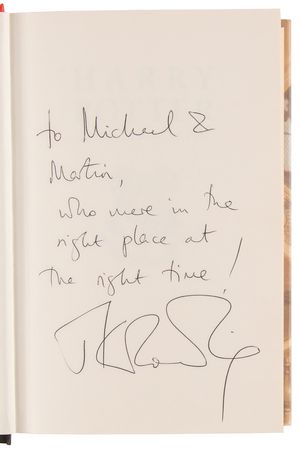 HARRY
POTTER
to Michael &
Martin,
who were in the
right place at
the right time!
JK Rowling